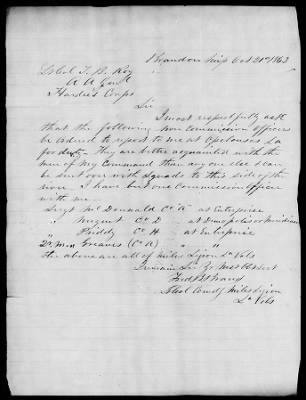 Brandon Miss Oct 21st 1863
Lt Col T. B. Roy
A A Genl
Hardee's Corps
Sir
I most respectfully ask
that the following non commission officers
be ordered to report to me at Opelousas La
for duty. They are better acquainted with the
men of my Command than any one else I can
be sent over with squads to this side of the
river. I have but one Commission officer
with me.
Sergt McDonnald Co A at Enterprise
" Nugent Co D " at Demopolis or Meridian
" Priddy Co H at Enterprise
2d Greaves (Co A) " "
the above are all of Miles Legion La Vols
I remain Sir Yr Most Obt Servt
Fred B Brand
Lt Col Comdg Miles Legion
La Vols